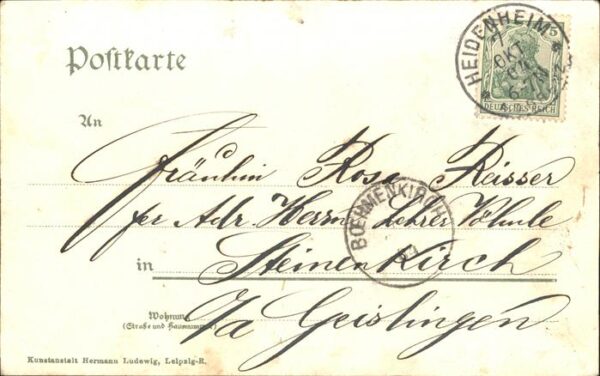 Postkarte
HEIDENHEIM
OKT
04
5
DEUTSCHES REICH
An
Fräulein Rosa Reisser
per Adr. Herrn Lehrer
BŒHMENKIRCH
in Steinenkirch
Wohnung
(Straße und Hausnummer)
O/a Geislingen
Kunstanstalt Hermann Ludewig, Leipzig-R.